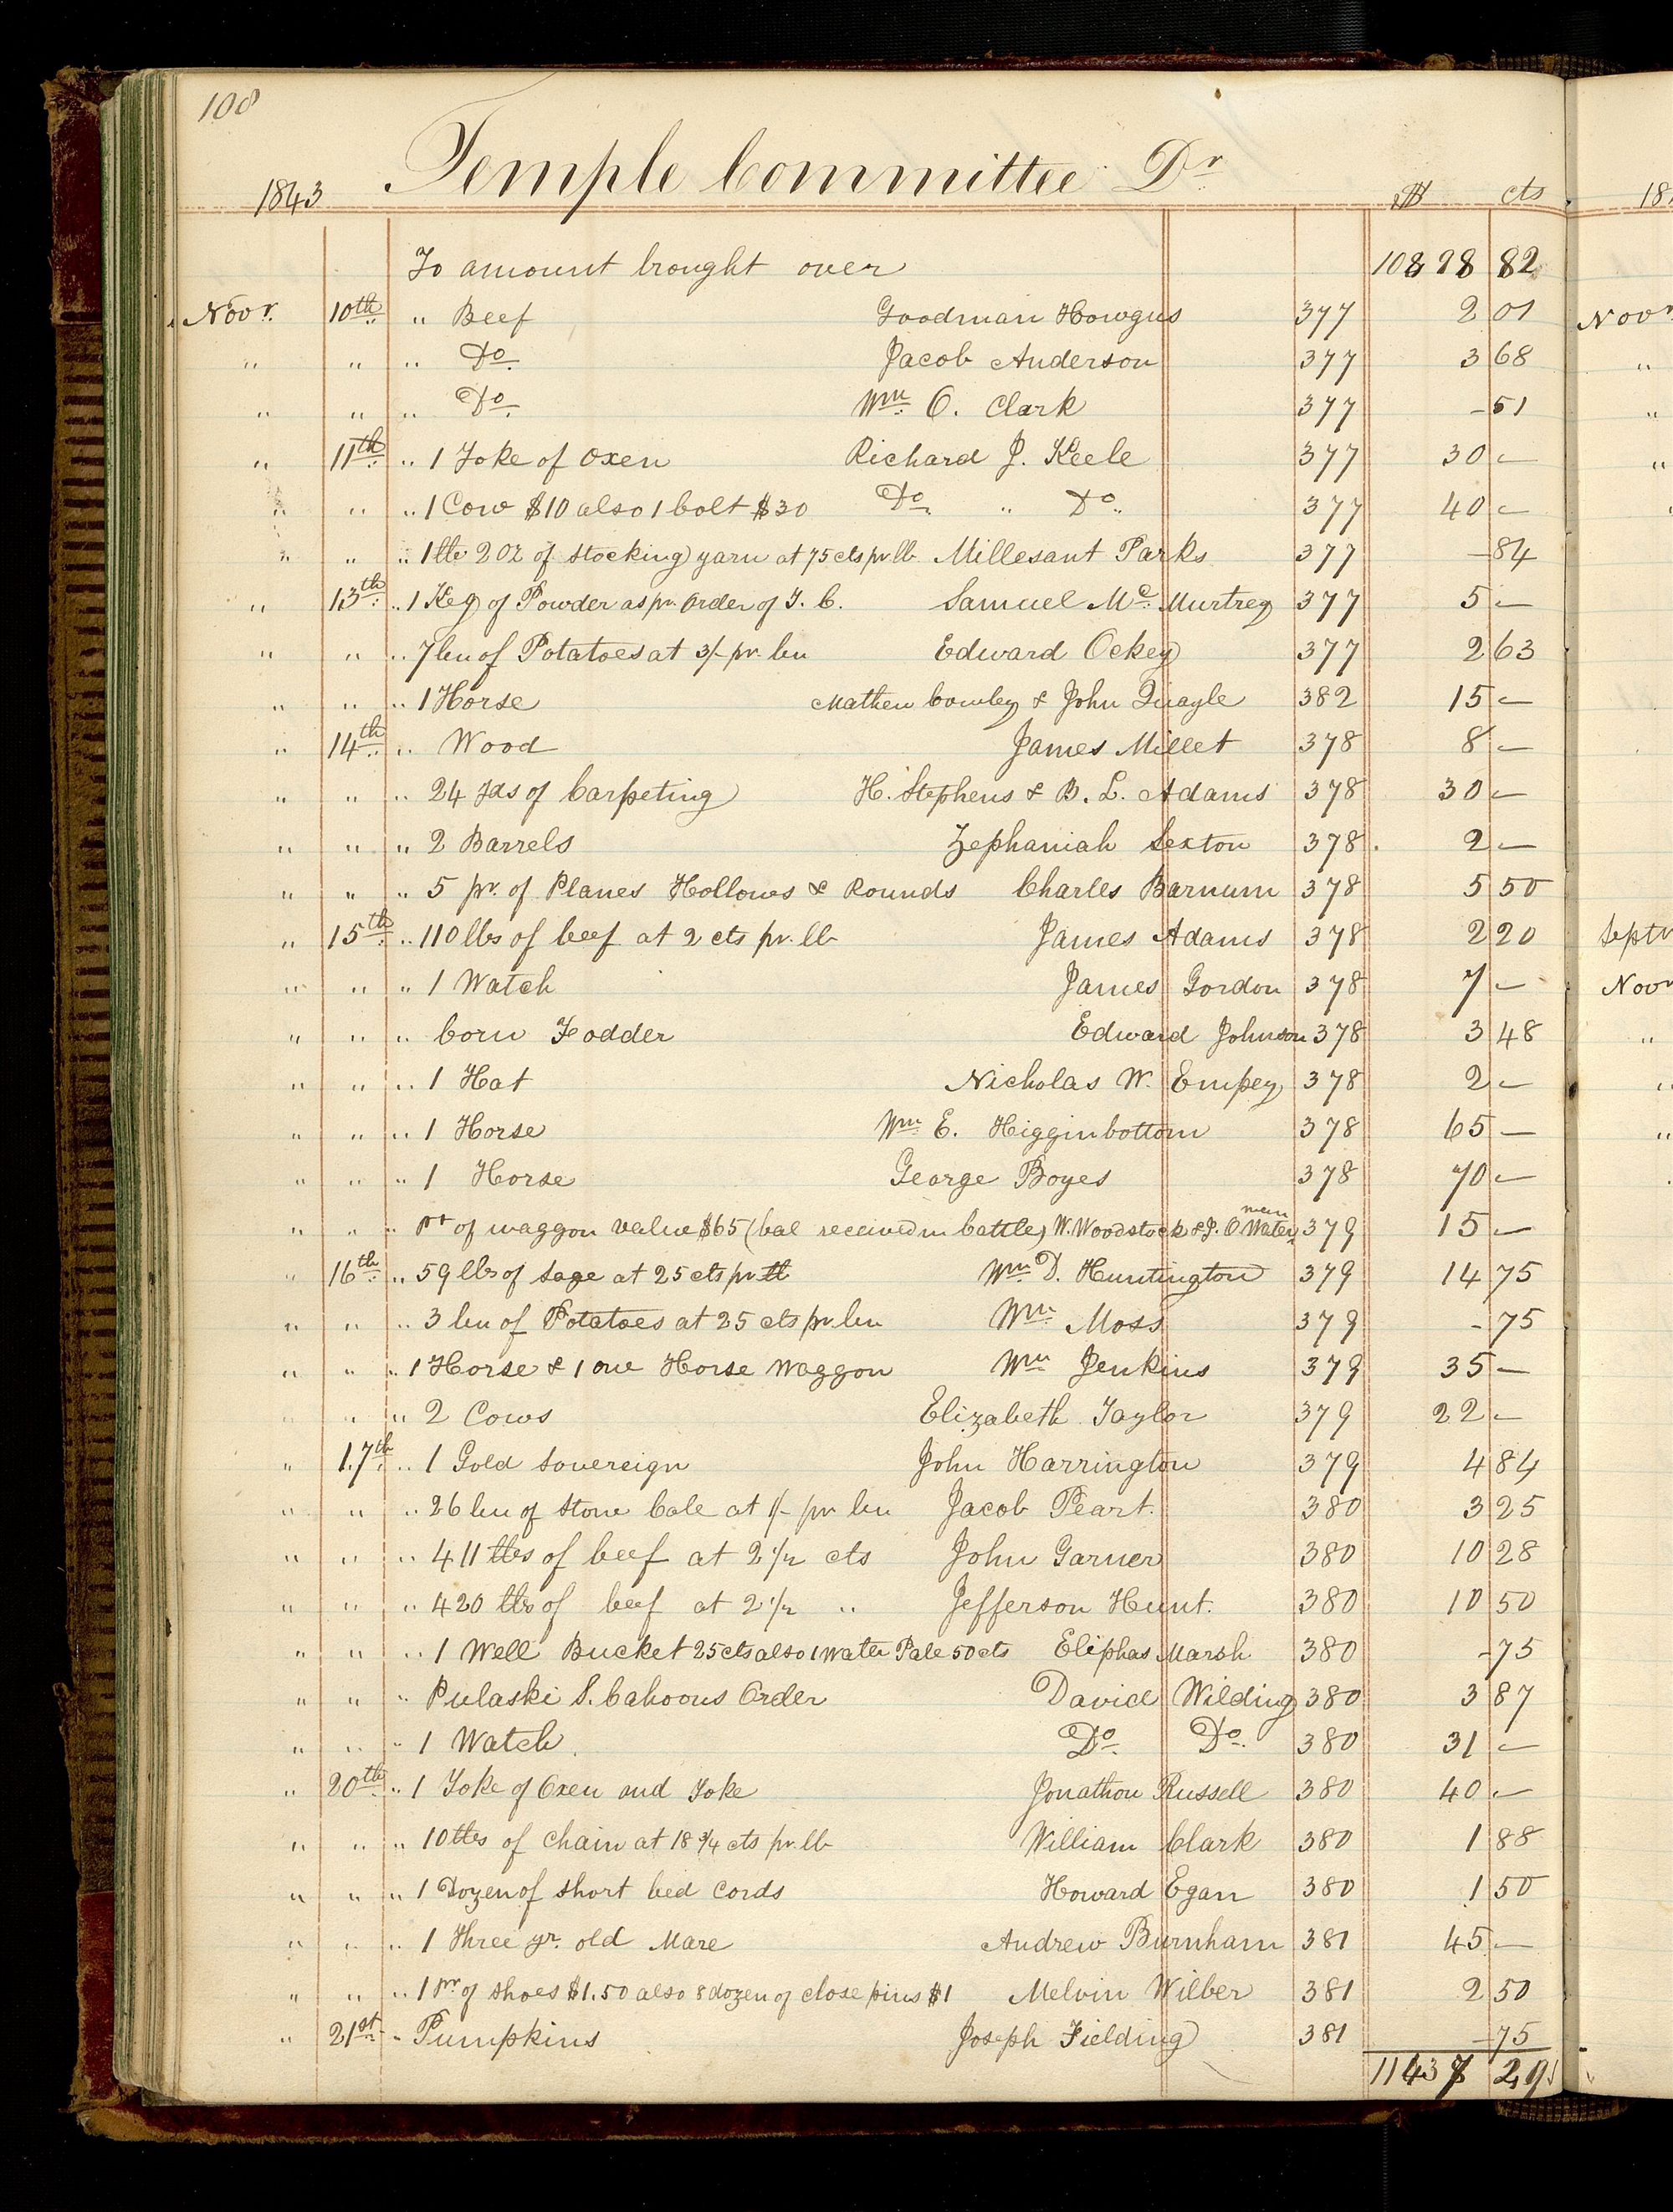 108
1843 Temple Committee Dr
$ cts
To amount brought over 10828 82
Novr. 10th " Beef Goodman Howgus 377 2 01
" " " Do. Jacob Anderson 377 3 68
" " " Do. Wm. O. Clark 377 - 51
" 11th " 1 Yoke of Oxen Richard J. Keele 377 30 -
" " " 1 Cow $10 also 1 bolt $30 Do. " Do. 377 40 -
" " " 1 lb 2 oz of stocking yarn at 75 cts pr lb Millesant Parks 377 - 84
" 13th " 1 Keg of Powder as pr. Order of T. C. Samuel Mc. Murtrey 377 5 -
" " " 7 bu of Potatoes at 3/- pr. bu Edward Ockey 377 2 63
" " " 1 Horse Mathew Cowley & John Quayle 382 15 -
" 14th " Wood James Millet 378 8 -
" " " 24 Yds of Carpeting H. Stephens & B. L. Adams 378 30 -
" " " 2 Barrels Zephaniah Sexton 378 2 -
" " " 5 pr. of Planes Hollows & Rounds Charles Barnum 378 5 50
" 15th " 110 lbs of beef at 2 cts pr. lb James Adams 378 2 20
" " " 1 Watch James Gordon 378 7 -
" " " Corn Fodder Edward Johnson 378 3 48
" " " 1 Hat Nicholas W. Empey 378 2 -
" " " 1 Horse Wm E. Higginbottom 378 65 -
" " " 1 Horse George Boyes 378 70 -
" " " pt of waggon value $65 (bal received in Cattle) W. Woodstock & J. O Waterman 379 15 -
" 16th " 59 lbs of Sage at 25 cts pr lb Wm D. Huntington 379 14 75
" " " 3 bu of Potatoes at 25 cts pr. bu Wm Moss 379 - 75
" " " 1 Horse & 1 one Horse Waggon Wm Jenkins 379 35 -
" " " 2 Cows Elizabeth Taylor 379 22 -
" 17th " 1 Gold Sovereign John Harrington 379 4 84
" " " 26 bu of Stone Cole at 1/- pr bu Jacob Peart. 380 3 25
" " " 411 lbs of beef at 2 1/2 cts John Garner 380 10 28
" " " 420 lbs of beef at 2 1/2 " Jefferson Hunt. 380 10 50
" " " 1 Well Bucket 25 cts also 1 Water Pale 50 cts Eliphas Marsh 380 - 75
" " " Pulaski S. Cahoons Order David Wilding 380 3 87
" " " 1 Watch Do. Do. 380 31 -
" 20th " 1 Yoke of Oxen and Yoke Jonathon Russell 380 40 -
" " " 10 lbs of Chain at 18 3/4 cts pr. lb William Clark 380 1 88
" " " 1 Dozen of Short bed Cords Howard Egan 380 1 50
" " " 1 Three yr. old Mare Andrew Burnham 381 45 -
" " " 1 pr of Shoes $1.50 also 8 dozen of close pins $1 Melvin Wilber 381 2 50
" 21st " Pumpkins Joseph Fielding 381 - 75
11437 29
18
Novr
"
"
"
Septr
Novr
"
"
"